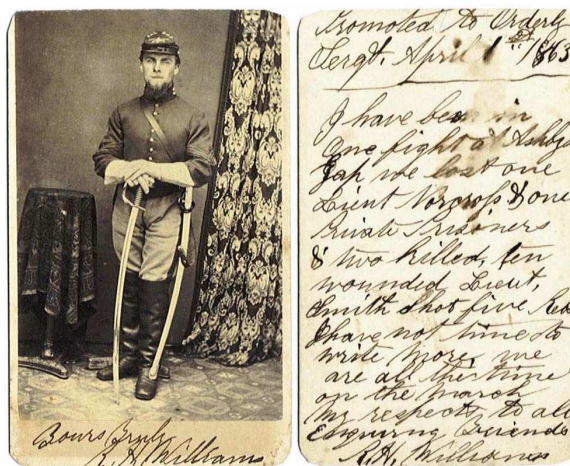 Yours Truly
R. H. Williams
Promoted to Orderly
Sergt. April 1st 1863
I have been in
one fight at Ashbys
Gap we lost one
Lieut Norcross & one
Private Prisoners
& two killed, ten
wounded Lieut,
Smith shot five Rebs
I have not time to
write more, we
are all the time
on the march
my respects to all
Enquiring Friends
R. H. Williams